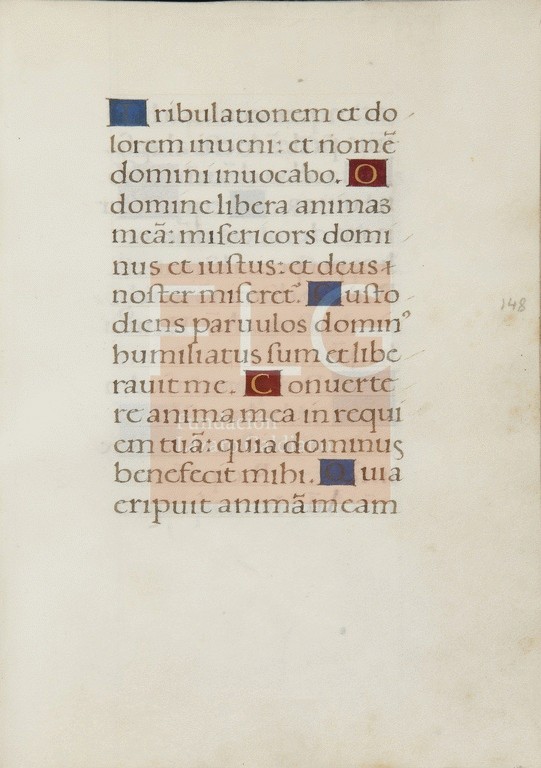 Tribulationem et do
lorem inueni: et nomẽ
domini inuocabo. O
domine libera animaʒ
meã: misericors domi
nus et iustus: et deus
noster miseret᷑. Custo
diens paruulos dominꝰ
humiliatus sum et libe
rauit me. Conuerte
re anima mea in requi
em tuã: quia dominus
benefecit mihi. Quia
eripuit animã meam
148
FLG
Fundación